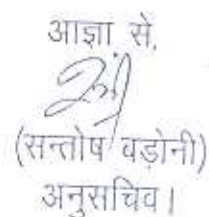 आज्ञा से,
(सन्तोष वडोनी)
अनुसचिव।